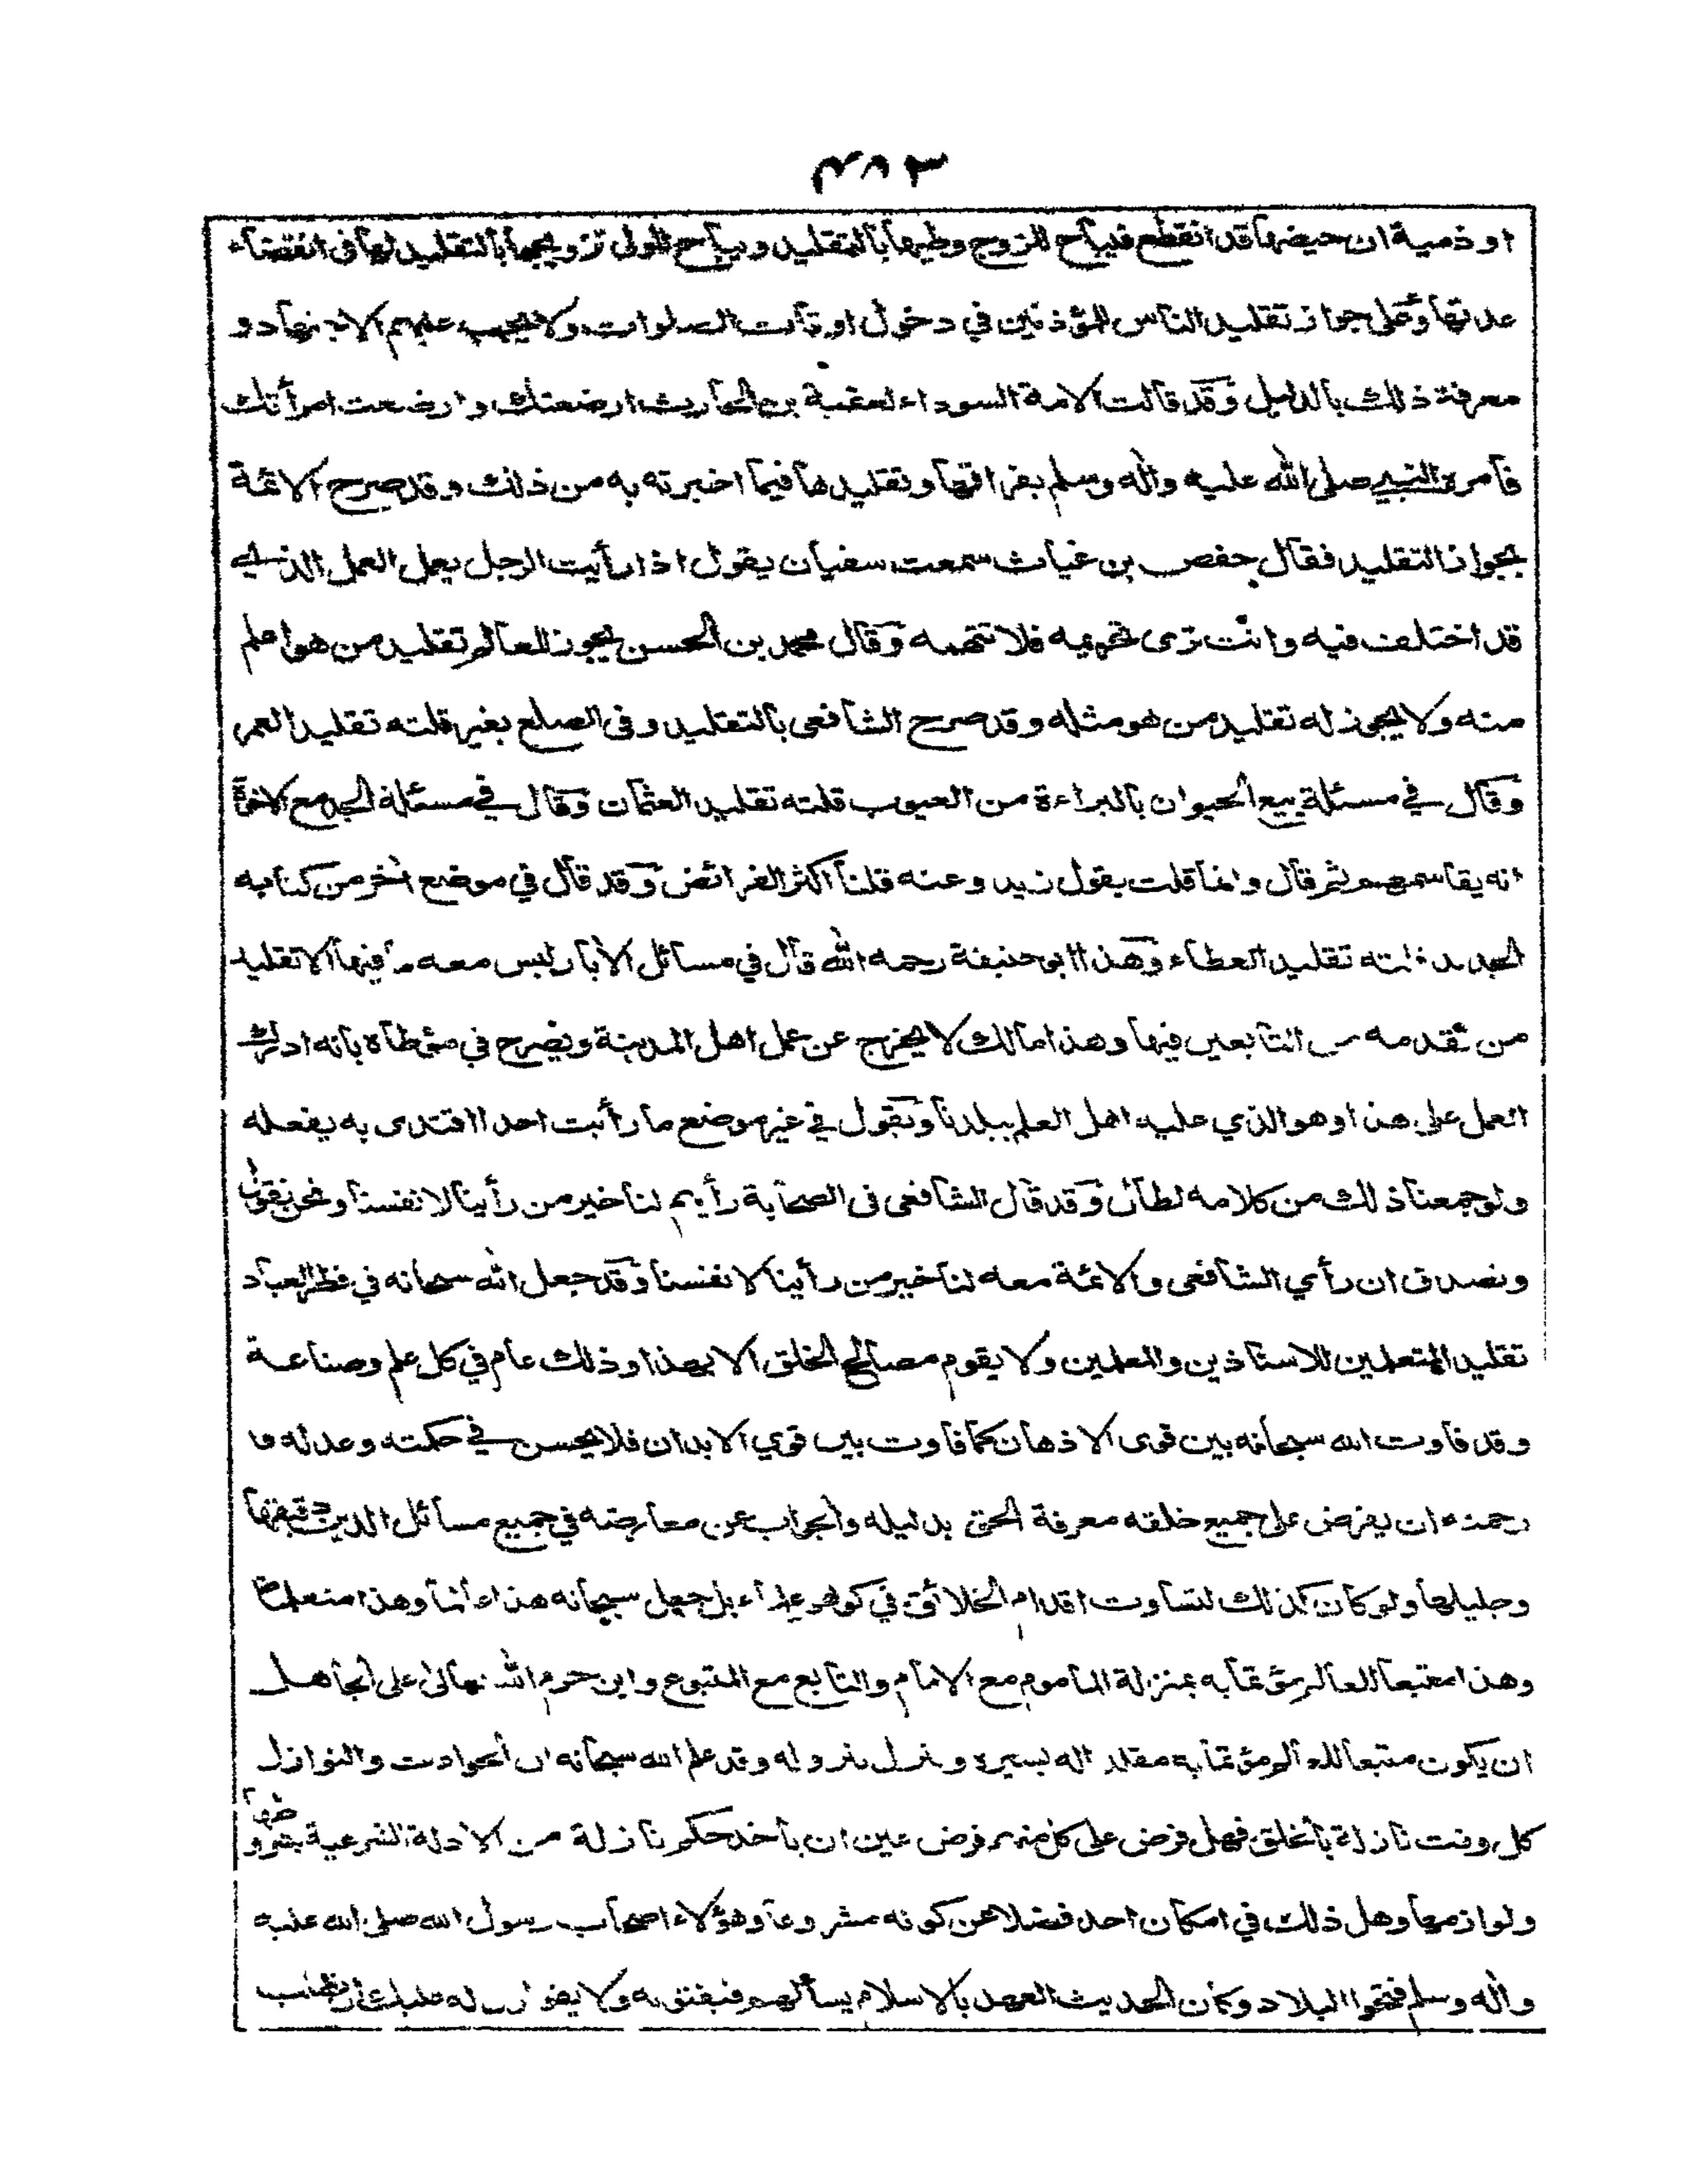 ٤٨٣
او ذمية ان حيضها قد انقطع فيباح للزوج وطيها بالتقليد ويباح للولى تزويجها بالتقليد لها فى انقضاء
عدتها وعلى جواز تقليد الناس المؤذنين في دخول اوقات الصلوات ولا يجب عليهم الاجتهاد و
معرفة ذلك بالدليل وقد قالت الامة السوداء لعقبة بن الحارث ارضعتك وارضعت امرأتك
فامره النبي صلى الله عليه واله وسلم بفراقها وتقليدها فيما اخبرته به من ذلك وقد صرح الائمة
بجواز التقليد فقال حفص بن غياث سمعت سفيان يقول اذا رأيت الرجل يعمل العمل الذي
قد اختلف فيه وانت ترى تحريمه فلا تتهمه وقال محمد بن الحسن يجوز للعالم تقليد من هو اعلم
منه ولا يجوز له تقليد من هو مثله وقد صرح الشافعى بالتقليد وفى الصلع بغير قلته تقليد العمر
وقال في مسئلة بيع الحيوان بالبراءة من العيوب قلته تقليد العثمان وقال في مسئلة الجد مع الاخوة
انه يقاسمهم ثم قال وانما قلت بقول زيد وعنه قلنا اكثر الفرائض وقد قال في موضع اخر من كتابه
الجديد قلته تقليد العطاء وهذا ابو حنيفة رحمه الله قال في مسائل الأبار ليس معه فيها الا تقليد
من تقدمه من التابعين فيها وهذا مالك لا يخرج عن عمل اهل المدينة ويصرح في مؤطاه بانه ادرك
العمل على هذا وهو الذي عليه اهل العلم ببلدنا ويقول في غير موضع ما رأيت احدا اقتدى به يفعله
ولو جمعنا ذلك من كلامه لطال وقد قال الشافعى فى الصحابة رأيهم لنا خير من رأينا لانفسنا ونحن نقول
ونصدق ان رأي الشافعى والائمة معه لنا خير من رأينا لانفسنا وقد جعل الله سبحانه في فطر العباد
تقليد المتعلمين للاستاذين والمعلمين ولا يقوم مصالح الخلق الا بهذا وذلك عام في كل علم وصناعة
وقد فاوت الله سبحانه بين قوى الاذهان كما فاوت بين قوي الابدان فلا يحسن في حكمته وعدله و
رحمته ان يفرض على جميع خلقه معرفة الحق بدليله والجواب عن معارضه في جميع مسائل الدين دقيقها
وجليلها ولو كان كذلك لتساوت اقدام الخلائق في كونهم علماء بل جعل سبحانه هذا عالما وهذا متعلما
وهذا متبعا للعالم مؤتما به بمنزلة الماموم مع الامام والتابع مع المتبوع واين حرم الله تعالى على الجاهل
ان يكون متبعا للعالم مؤتما به مقلدا له يسير بسيره وينزل بنزوله وقد علم الله سبحانه ان الحوادث والنوازل
كل وقت نازلة بالخلق فهل فرض على كل منهم فرض عين ان ياخذ حكم نازلة من الادلة الشرعية بشروطها
ولوازمها وهل ذلك في امكان احد فضلا عن كونه مشروعا وهؤلاء اصحاب رسول الله صلى الله عليه
واله وسلم فتحوا البلاد وكان الحديث العهد بالاسلام يسألهم فيفتونه ولا يقولون له عليك ان تطلب